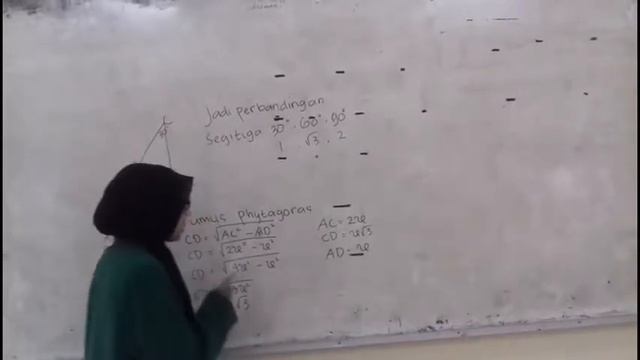 Jadi perbandingan
segitiga 30° . 60° . 90°
1 √3 . 2
umus phytagoras
CD = √AC² - AD²
CD = √2x² - x²
CD = √4x² - x²
√3
AC = 2x
CD = x√3
AD = x